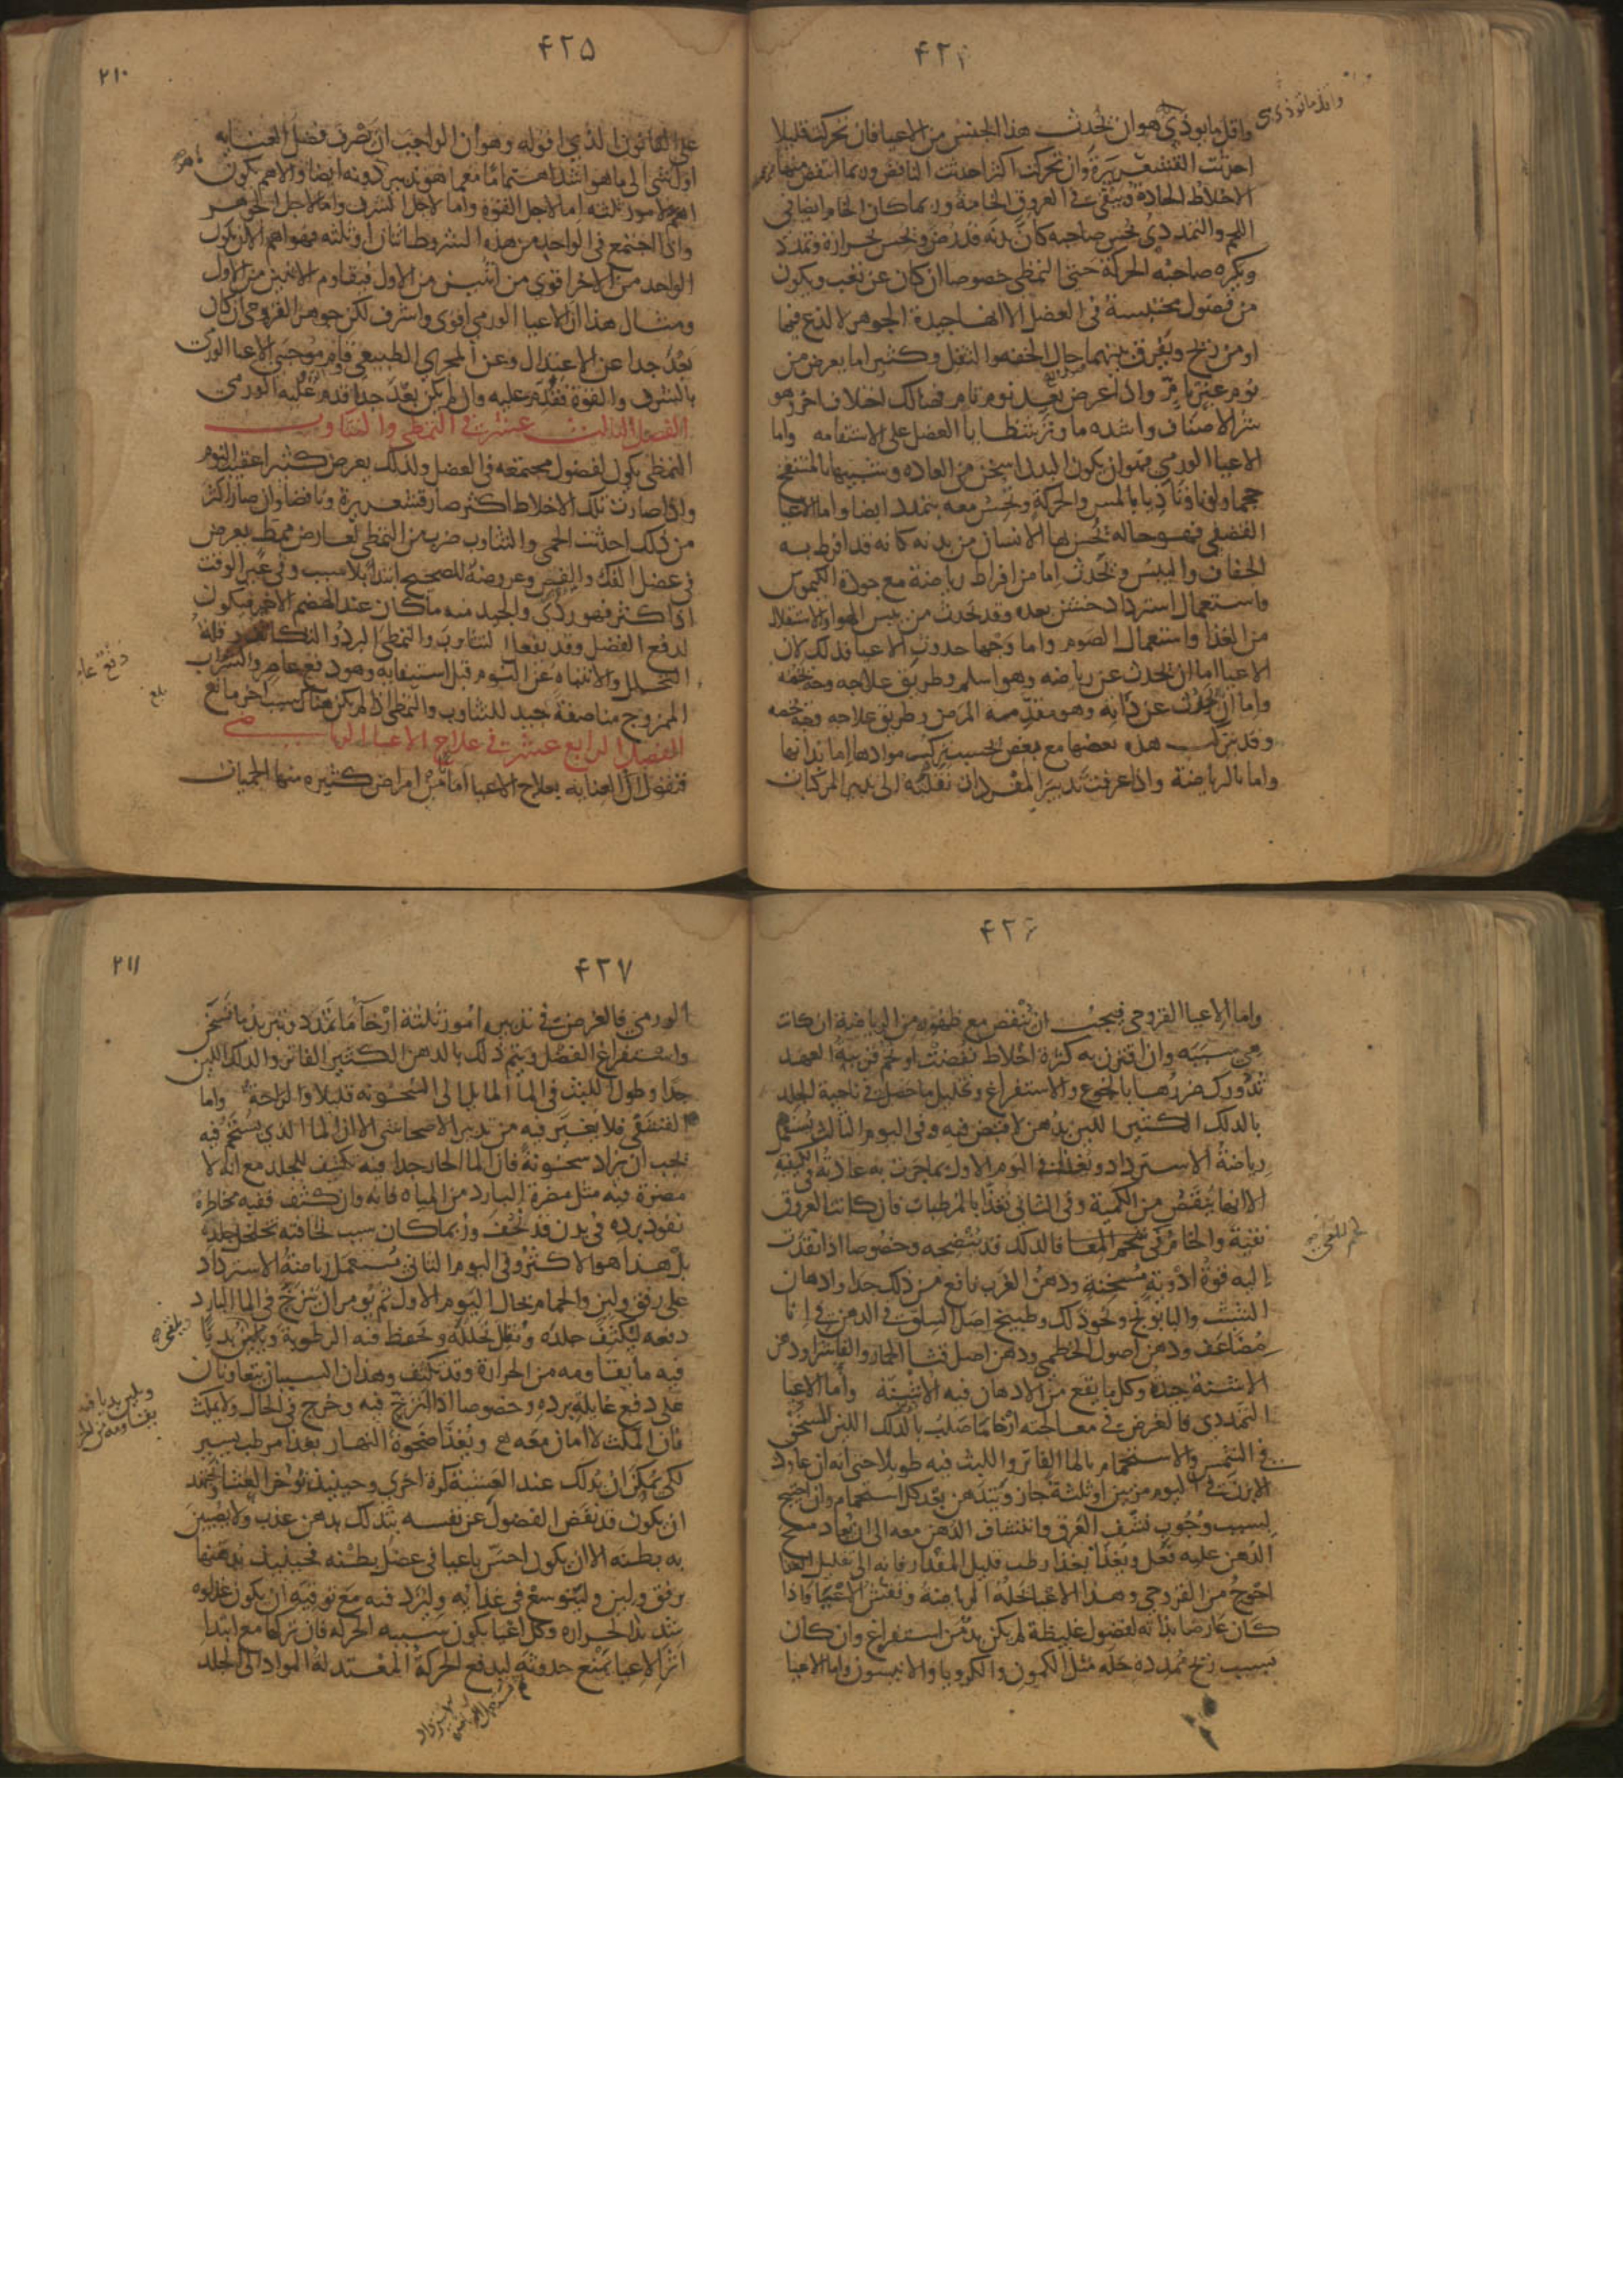 ۴۲۴
واقل ما يوذي هو ان يحدث هذا الجنس من الاعيا فان تحركت قليلا
احدثت القشعريرة وان تحركت اكثر احدثت النافض وربما انتفض منها
الاخلاط الحادة ويبقى في العروق الخامة وربما كان الخام ايضا في
اللحم والتمددي يحس صاحبه كان بدنه قد رض ويحس بحرارة وتمدد
ويكره صاحبه الحركة حتى التمطي خصوصا ان كان عن تعب ويكون
من فضول محتبسة في العضل الا انها جيدة الجوهر لا لذع فيها
او من ريح ويفرق بينهما حال الخفه والثقل وكثيرا ما يعرض من
نوم غير تام واذا عرض بعد نوم تام فهنالك اختلاف اخر وهو
شر الاصناف واشده ما وتر شظايا العضل على الاستقامه واما
الاعيا الورمي فهو ان يكون البدن اسخن من العاده وشبيها بالمنتفخ
حجما ولونا وتاذيا بالمس والحركة ويحس معه بتمدد ايضا واما الاعيا
القشفي فهو حاله يحس لها الانسان من بدنه كانه قد افرط به
الجفاف واليبس ويحدث اما من افراط رياضة مع جودة الكيموس
واستعمال استرداد خشن بعده وقد يحدث من يبس الهوا والاستقلال
من الغذا واستعمال الصوم واما وجهما حدوث الاعيا فذلك لان
الاعيا اما ان يحدث عن رياضه وهو اسلم وطريق علاجه وجه يخصه
واما ان يحدث عن ذاته وهو مقدمه المرض وطريق علاجه وجه يخصه
وقد يتركب هذه بعضها مع بعض بحسب تركيب موادها اما بذاتها
واما بالرياضة واذا عرفت تدبير المفردات نقلته الى تدبير المركبات
۴۲۵
۲۱۰
على القانون الذي اقوله وهو ان الواجب ان يصرف فضل العنايه
اول شي الى ما هو اشد اهتماما مع ما هو يدبر دونه ايضا والاهم يكون
اهم لامور ثلثه اما لاجل القوة واما لاجل الشرف واما لاجل الجوهر
واذا اجتمع في الواحد من هذه الشروط اثنان او ثلثه فهو اهم الا ان يكون
الواحد من الاخر اقوي من اثنين من الاول فيقاوم الاثنين من الاول
ومثال هذا ان الاعيا الورمي اقوى واشرف لكن جوهر القروحي ان كان
بعد جدا عن الاعتدال وعن المجري الطبيعي قاوم موجبي الاعيا الورمي
بالشرف والقوة فقدم عليه وان لم يكن بعد جدا قدم عليه الورمي
الفصل الثالث عشر في التمطي والتثاوب
التمطي يكون لفضول مجتمعه في العضل ولذلك يعرض كثيرا عقيب النوم
واذا صارت تلك الاخلاط اكثر صار قشعريرة ونافضا وان صار اكثر
من ذلك احدثت الحمى والتثاوب ضرب من التمطي تعارض تمطي يعرض
في عضل الفك والقص وعروضه للصحيح ابتدا بلا سبب وفي غير الوقت
اذا كثر فهو ردي والجيد منه ما كان عند الهضم الاخير فيكون
لدفع الفضل وقد يفعل التثاوب والتمطي البرد والتكاثف وقلة
التحلل والانتباه عن النوم قبل استيفايه وهو دفع عاصر والشراب
الممزوج مناصفة جيد للتثاوب والتمطي اذا لم يكن هناك سبب اخر مانع
الفصل الرابع عشر في علاج الاعيا الرياضي
فنقول ان العنايه بعلاج الاعيا امان من امراض كثيره منها الحميات
۴۲۶
واما الاعيا القروحي فيجب ان ينقص مع ظهوره من الرياضة ان كانت
هي سببه وان اقترن به كثرة اخلاط نفضت او تخم قريبة العهد
تدورك ضررها بالجوع والاستفراغ وتحليل ما حصل في ناحية الجلد
بالدلك الكثير اللين بدهن لا قبض فيه وفي اليوم الثالث يستعمل
رياضة الاسترداد ويغذى في اليوم الاول بما جرت به عادته في الكيفيه
الا انها ينقص من الكمية وفي الثاني يغذا بالمرطبات فان كانت العروق
نقية والخام في تخم المعا فالدلك قد ينضجه وخصوصا اذا نفذت
اليه قوة ادوية مسخنة ودهن الغرب نافع من ذلك جدا وادهان
الشبث والبابونج ونحو ذلك وطبيخ اصل السلق في الدهن في انا
مضاعف ودهن اصول الخطمي ودهن اصل قثا الحمار والفاشرا ودهن
الاشنة جيد وكل ما يقع من الادهان فيه الاشنة واما الاعيا
التمددي فالغرض في معالجته ارخا ما صلب بالدلك اللين المسخن
في الشمس والاستحمام بالما الفاتر واللبث فيه طويلا حتى انه ان عاود
الابزن في اليوم مرتين او ثلثة جاز ويتدهن بعد كل استحمام وان احتيج
لسبب وجوب نشف العرق وانتشاف الدهن معه الى ان يعاد مسح
الدهن عليه فعل ويغذا بغذا رطب قليل المقدار فانه الى تقليل الغذا
احوج من القروحي وهذا الاعيا تحلله الرياضة ونفش الاعيا واذا
كان عارضا بذاته لفضول غليظة لم يكن بد من استفراغ وان كان
بسبب ريح ممدده حله مثل الكمون والكرويا والانيسون واما الاعيا
۴۲۷
۲۱۱
الورمي فالغرض في تدبيره امور ثلثة ارخا ما تمدد وتبريد ما تسخن
واستفراغ الفضل ويتم ذلك بالدهن الكثير الفاتر والدلك اللين
جدا وطول اللبث في الما المايل الى السخونه قليلا والراحة واما
القشفي فلا يغير فيه من تدبير الاصحا شي الا ان الما الذي يستحم فيه
يجب ان يزاد سخونة فان الما الحار جدا فيه تكثيف للجلد مع انه لا
مضرة فيه مثل مضرة البارد من المياه فانه وان كثف ففيه مخاطرة
نفوذ برده في بدن قد نحف وربما كان سبب نحافته تخلخل جلده
بل هذا هو الاكثر وفي اليوم الثاني يستعمل رياضة الاسترداد
على رفق ولين والحمام بحال اليوم الاول ثم يومر ان يتزج في الما البارد
دفعه ليكثف جلده ويقل تحلله ويحفظ فيه الرطوبة ويكثر بدنا
فيه ما يقاومه من الحرارة وقد تكثف وهذان السببان يتعاونان
على دفع غايلة برده وخصوصا اذا انزج فيه وخرج في الحال ولا يمكث
فان المكث لا امان معه ويغذا ضحوة النهار بغذا مرطب يسير
لكي يمكن ان يدلك عند العشية كرة اخري وحينيذ يوخر العشا ويجتهد
ان يكون قد نفض الفضول عن نفسه يتدلك بدهن عذب ولا يصيبن
به بطنه الا ان يكون احس باعيا في عضل بطنه فحينيذ يدهنها
برفق ولين وليتوسع في غذايه وليزد فيه مع توقيه ان يكون غذاوه
شديد الحراره وكل اعيا يكون سببه الحركه فان تركها مع ابتدا
اثر الاعيا يمنع حدوثه ليدفع الحركة المعتدلة المواد الى الجلد